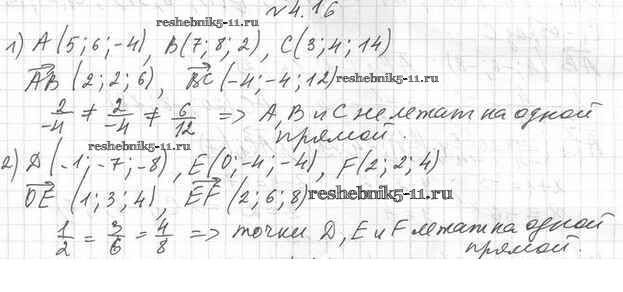 №4.16
reshebnik5-11.ru
1) A(5;6;-4), B(7;8;2), C(3;4;14)
AB (2;2;6), BC (-4;-4;12) reshebnik5-11.ru
2/-4 ≠ 2/-4 ≠ 6/12 => A, B и C не лежат на одной
прямой.
reshebnik5-11.ru
2) D(-1;-7;-8), E(0;-4;-4), F(2;2;4)
DE (1;3;4), EF (2;6;8) reshebnik5-11.ru
1/2 = 3/6 = 4/8 => точки D, E и F лежат на одной
прямой.